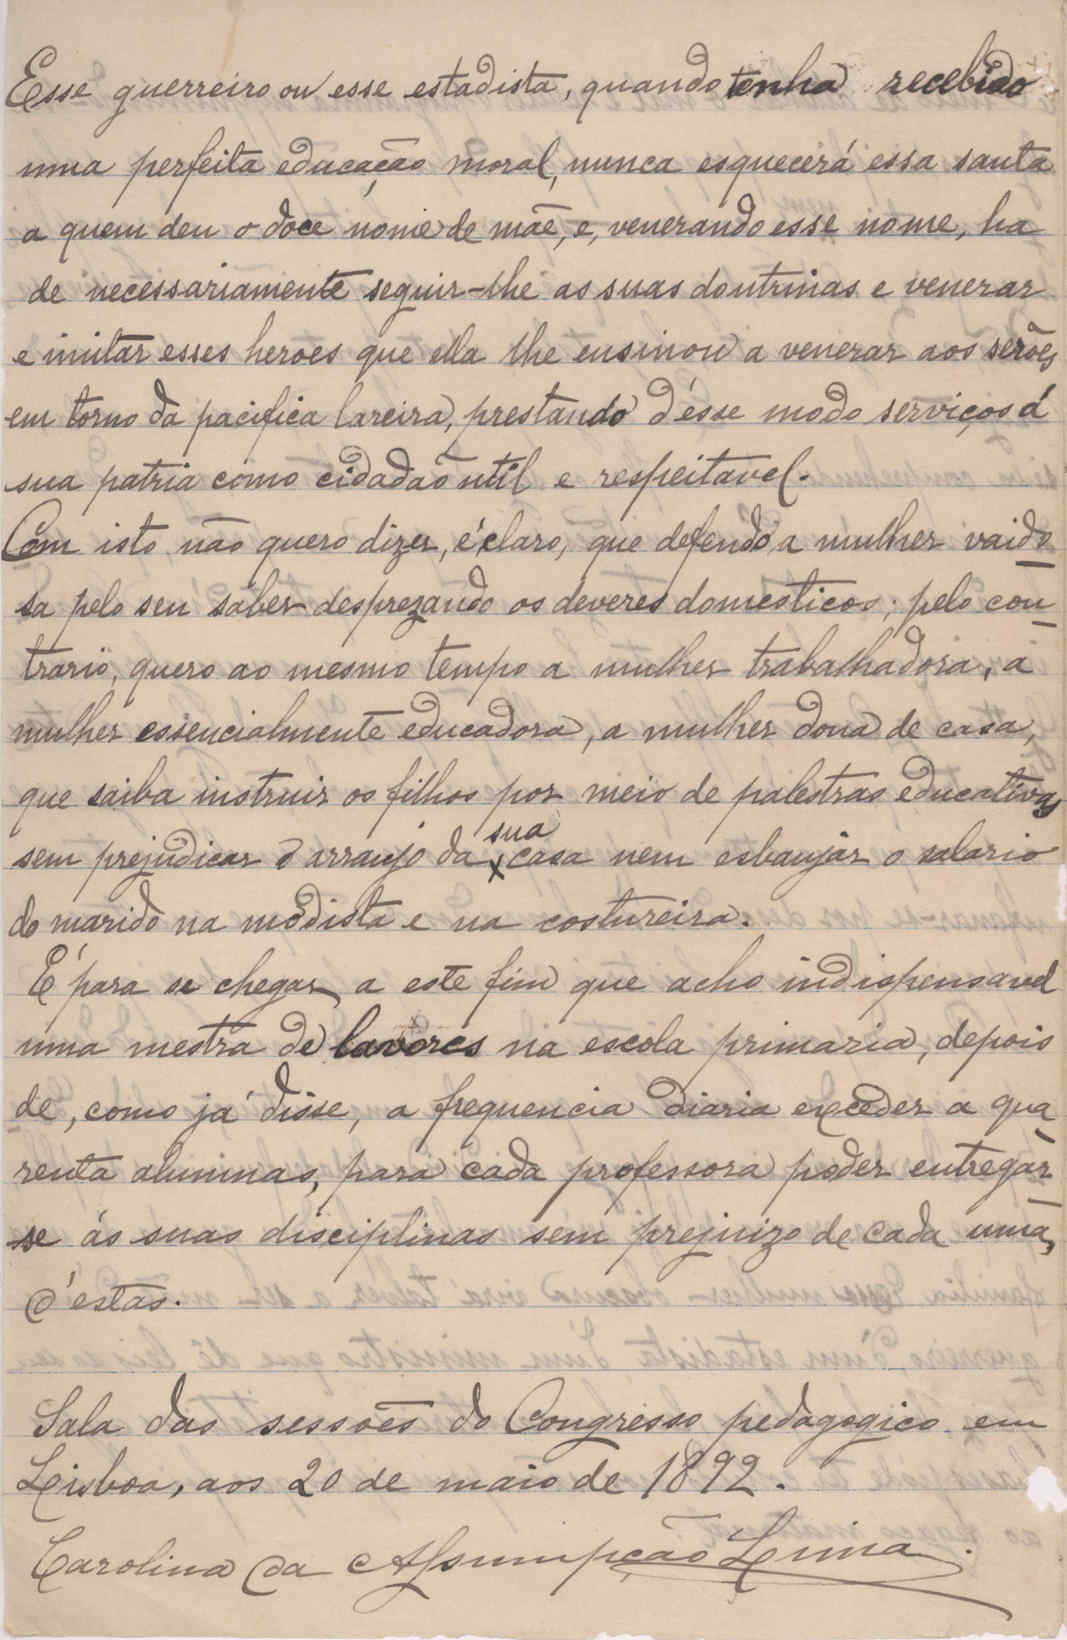 Esse guerreiro ou esse estadista, quando tenha recebido
uma perfeita educação moral, nunca esquecerá essa santa
a quem deu o doce nome de mãe, e, venerando esse nome, ha
de necessariamente seguir-lhe as suas doutrinas e venerar
e imitar esses heroes que ella lhe ensinou a venerar aos serões
em torno da pacifica lareira, prestando d'ésse modo serviços á
sua patria como cidadão util e respeitavel.
Com isto não quero dizer, é claro, que defendo a mulher vaido-
sa pelo seu saber desprezando os deveres domesticos; pelo con-
trario, quero ao mesmo tempo a mulher trabalhadora, a
mulher essencialmente educadora, a mulher dona de casa,
que saiba instruir os filhos por meio de palestras educativas
sem prejudicar o arranjo da sua casa nem esbanjar o salario
do marido na modista e na costureira.
É para se chegar a este fim que acho indispensavel
uma mestra de lavores na escola primaria, depois
de, como já disse, a frequencia diaria exceder a qua-
renta alumnas, para cada professora poder entregar-
se ás suas disciplinas sem prejuizo de cada uma,
d'estas.
Sala das sessões do Congresso pedagogico em
Lisboa, aos 20 de maio de 1892.
Carolina da Assumpção Lima.